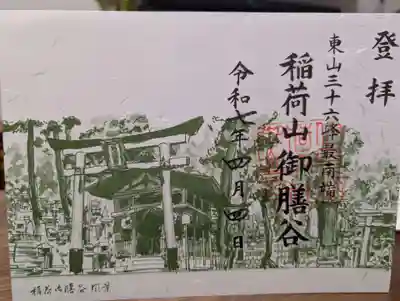 登拝
東山三十六峰最南端
稲荷山御膳谷
令和七年四月四日
稲荷山御膳谷風景